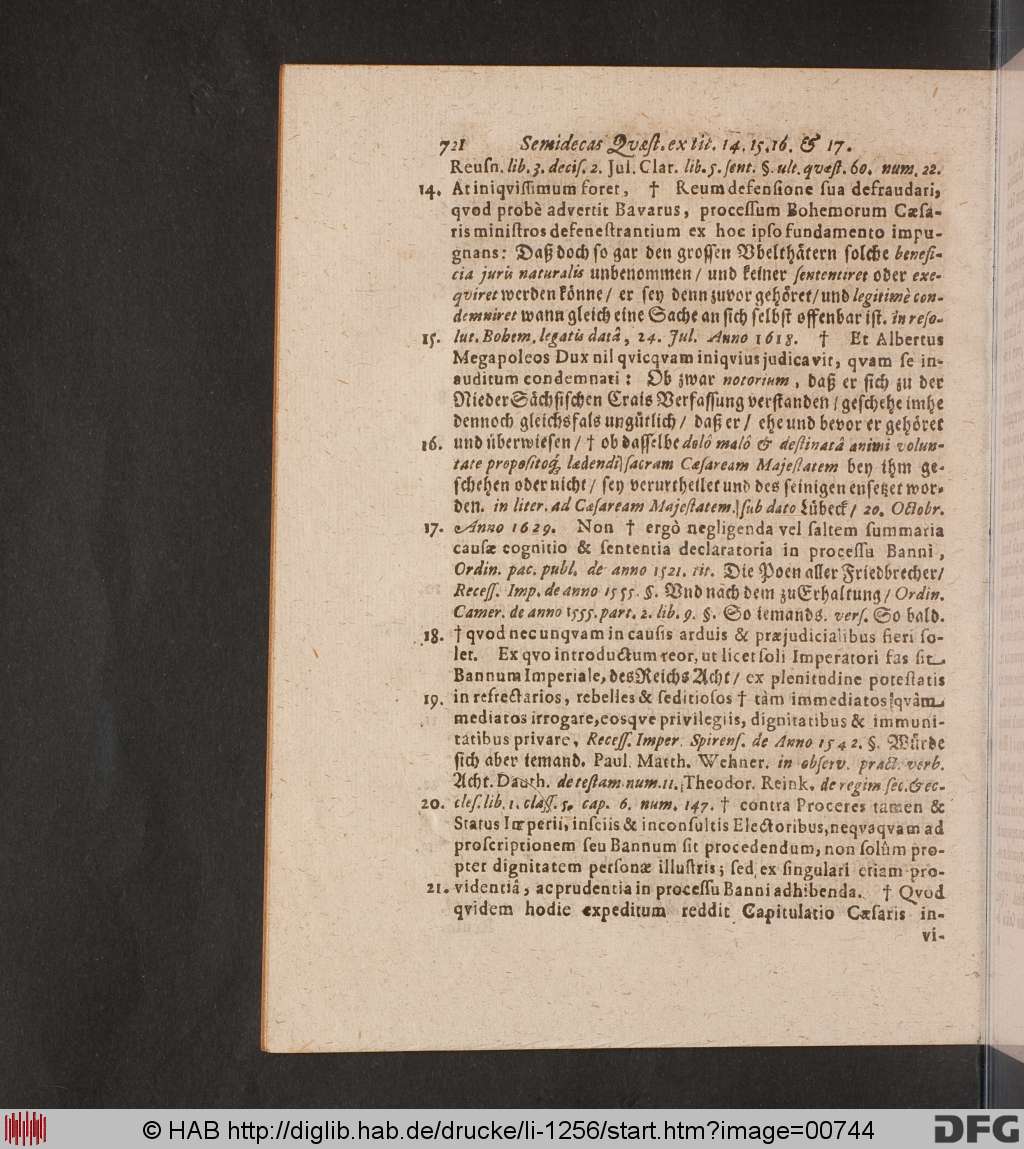 721 Semidecas Quæſt. ex tit. 14. 15. 16. & 17.
Reuſn. lib. 3. deciſ. 2. Jul. Clar. lib. 5. ſent. §. ult. qvæſt. 60. num. 22.
14. At iniqviſſimum foret, † Reum defenſione ſua defraudari,
qvod probè advertit Bavarus, proceſſum Bohemorum Cæſa-
ris miniſtros defeneſtrantium ex hoc ipſo fundamento impu-
gnans: Daß doch ſo gar den groſſen Vbelthätern ſolche benefi-
cia juris naturalis unbenommen / und keiner ſententiret oder exe-
qviret werden könne / er ſey denn zuvor gehöret / und legitimè con-
demniret wann gleich eine Sache an ſich ſelbſt offenbar iſt. in reſo-
15. lut. Bohem. legatis datâ, 24. Jul. Anno 1618. † Et Albertus
Megapoleos Dux nil qvicqvam iniqvius judicavit, qvam ſe in-
auditum condemnati: Ob zwar notorium, daß er ſich zu der
NiederSächſiſchen Crais Verfaſſung verſtanden / geſchehe imhe
dennoch gleichsfals ungütlich / daß er / ehe und bevor er gehöret
16. und überwieſen / † ob daſſelbe dolô malô & deſtinatâ animi volun-
tate propoſitoq́; lædendi ſacram Cæſaream Majeſtatem bey ihm ge-
ſchehen oder nicht / ſey verurtheilet und des ſeinigen enſetzet wor-
den. in liter. ad Cæſaream Majeſtatem ſub dato Lübeck / 20. Octobr.
17. Anno 1629. Non † ergò negligenda vel ſaltem ſummaria
cauſæ cognitio & ſententia declaratoria in proceſſu Banni,
Ordin. pac. publ. de anno 1521. tit. Die Poen aller Friedbrecher /
Receſſ. Imp. de anno 1555. §. Vnd nach dem zu Erhaltung / Ordin.
Camer. de anno 1555. part. 2. lib. 9. §. So iemands. verſ. So bald.
18. † qvod nec unqvam in cauſis arduis & præjudicialibus fieri ſo-
let. Ex qvo introductum reor, ut licet ſoli Imperatori fas ſit
Bannum Imperiale, des Reichs Acht / ex plenitudine poteſtatis
19. in refrectarios, rebelles & ſeditioſos † tàm immediatos qvàm
mediatos irrogare, eosqve privilegiis, dignitatibus & immuni-
tatibus privare, Receſſ. Imper. Spirenſ. de Anno 1542. §. Würde
ſich aber iemand. Paul. Matth. Wehner. in obſerv. pract. verb.
Acht. Dauth. de teſtam. num. 11. Theodor. Reink. de regim ſec. & ec-
20. cleſ. lib. 1. claſſ. 5. cap. 6. num. 147. † contra Proceres tamen &
Status Imperii, inſciis & inconſultis Electoribus, neqvaqvam ad
proſcriptionem ſeu Bannum ſit procedendum, non ſolûm pro-
pter dignitatem perſonæ illuſtris; ſed ex ſingulari etiam pro-
21. videntiâ, ac prudentia in proceſſu Banni adhibenda. † Qvod
qvidem hodie expeditum reddit Capitulatio Cæſaris in-
vi-
© HAB http://diglib.hab.de/drucke/li-1256/start.htm?image=00744
DFG